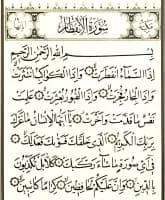 سُورَةُ الِانْفِطَارِ
بِسْمِ اللَّهِ الرَّحْمَٰنِ الرَّحِيمِ
إِذَا السَّمَاءُ انْفَطَرَتْ وَإِذَا الْكَوَاكِبُ انْتَثَرَتْ
وَإِذَا الْبِحَارُ فُجِّرَتْ وَإِذَا الْقُبُورُ بُعْثِرَتْ عَلِمَتْ
نَفْسٌ مَا قَدَّمَتْ وَأَخَّرَتْ يَا أَيُّهَا الْإِنْسَانُ مَا غَرَّكَ
بِرَبِّكَ الْكَرِيمِ الَّذِي خَلَقَكَ فَسَوَّاكَ فَعَدَلَكَ
فِي أَيِّ صُورَةٍ مَا شَاءَ رَكَّبَكَ كَلَّا بَلْ تُكَذِّبُونَ
بِالدِّينِ وَإِنَّ عَلَيْكُمْ لَحَافِظِينَ كِرَامًا كَاتِبِينَ